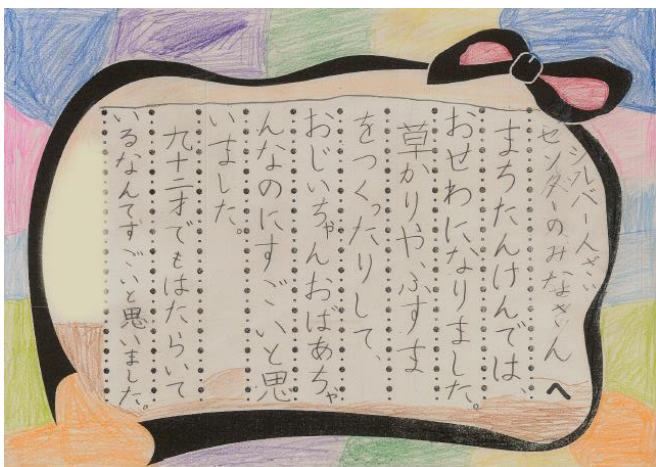 シルバー人ざい
センターのみなさん
へ
まちたんけんでは、
おせわになりました。
草かりや、ふすま
をつくったりして、
おじいちゃんおばあちゃ
んなのにすごいと思
いました。
九十二才でもはたらいて
いるなんてすごいと思いました。